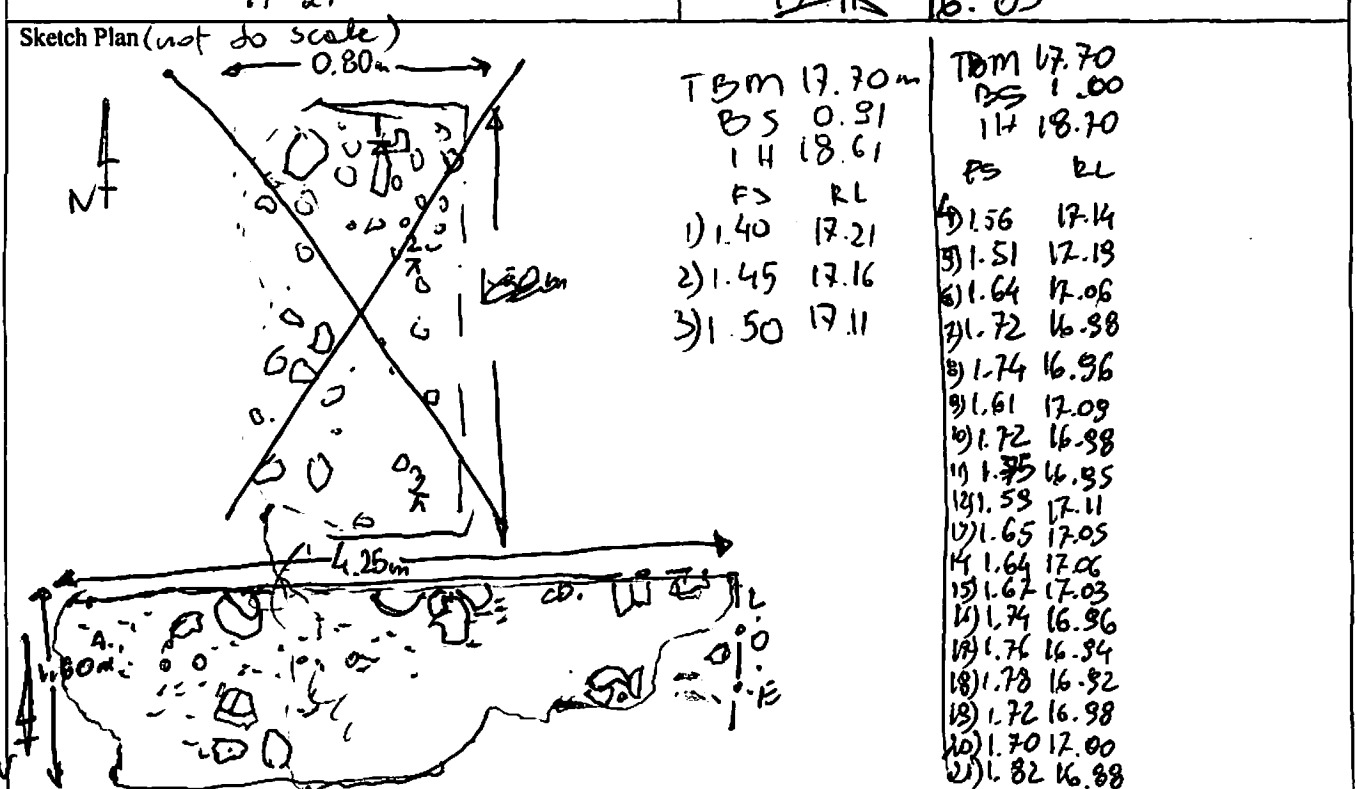 Sketch Plan (not to scale)
0.80m
N
1
2
3
TBM 17.70m
BS 0.91
IH 18.61
FS RL
1) 1.40 17.21
2) 1.45 17.16
3) 1.50 17.11
TBM 17.70
BS 1.00
IH 18.70
FS RL
4) 1.56 17.14
5) 1.51 17.19
6) 1.64 17.06
7) 1.72 16.98
8) 1.74 16.96
9) 1.61 17.09
10) 1.72 16.98
11) 1.75 16.95
12) 1.59 17.11
13) 1.65 17.05
14 1.64 17.06
15) 1.67 17.03
16) 1.74 16.96
17) 1.76 16.94
18) 1.78 16.92
19) 1.72 16.98
20) 1.70 17.00
21) 1.82 16.88
4.25m
L.O.E